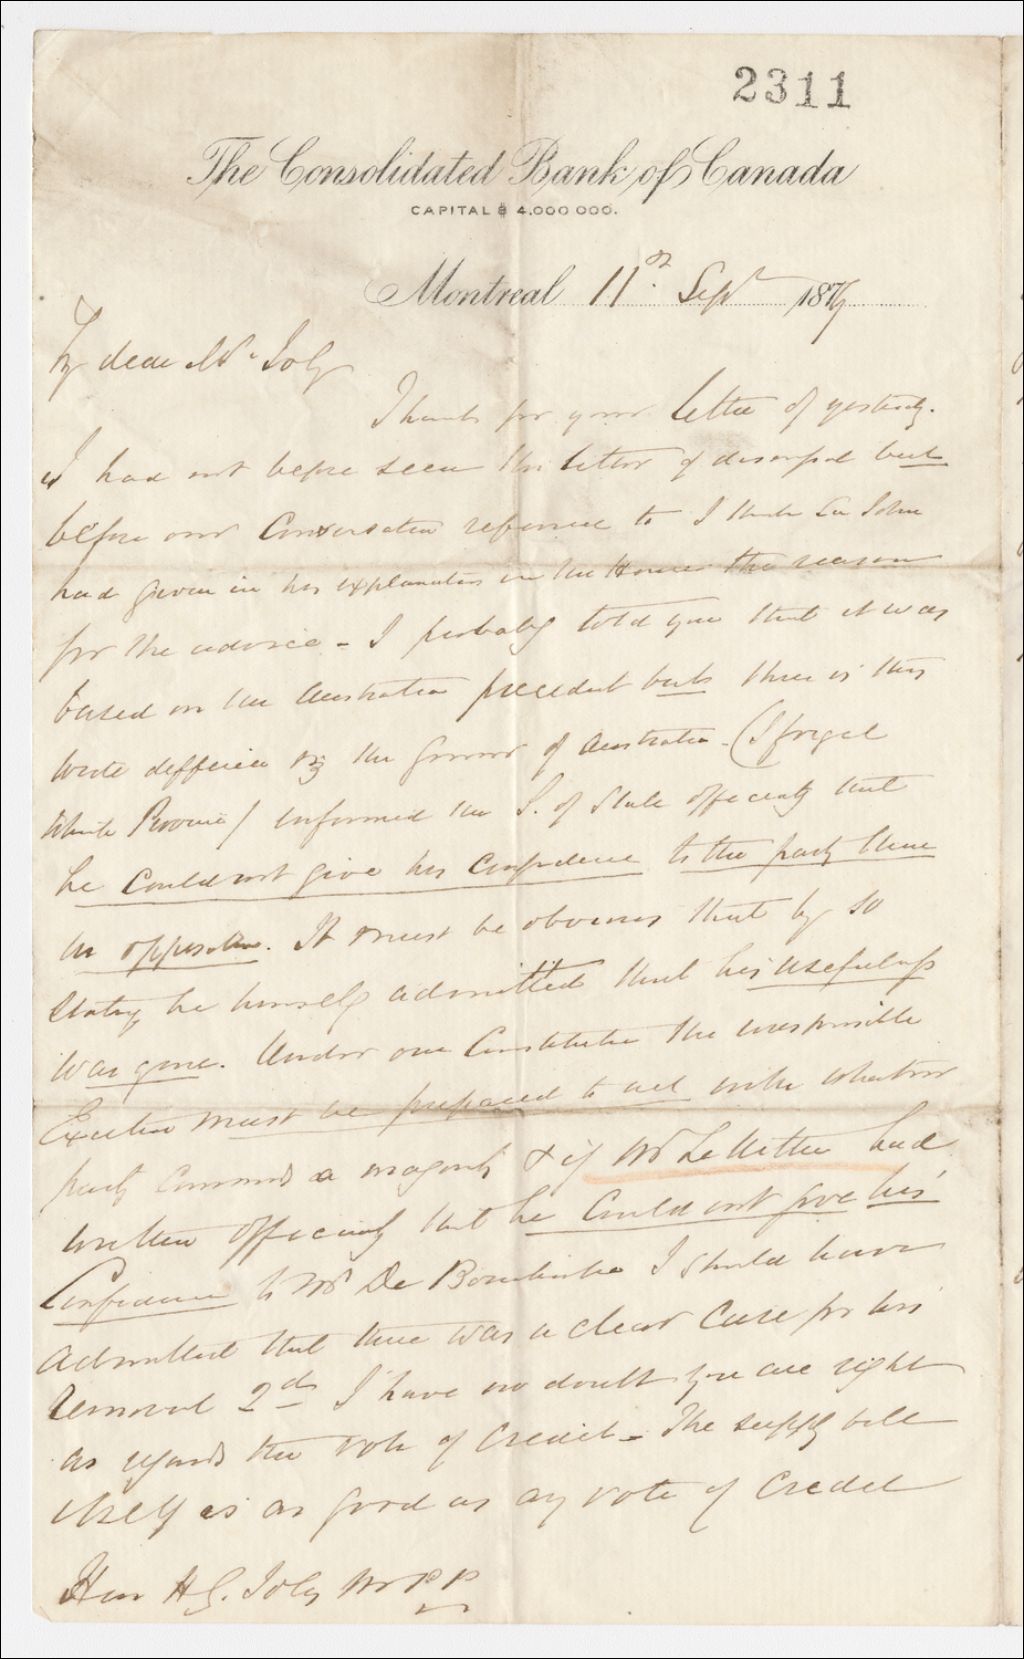 2311
The Consolidated Bank of Canada
CAPITAL $ 4.000 000.
Montreal 11th Septr 1879
My dear Mr Joly
Thanks for your letter of yesterday.
I had not before seen the letter of dismissal but
before our Conversation referred to I think Sir John
had given in his explanation in the House the reason
for the advice - I probably told you that it was
based on the Australian precedent but there is this
wide difference viz the Govnor of Australia. (I forget
which Province) informed the S. of State officially that
he could not give his confidence to the party then
in opposition. It must be obvious that by so
stating he himself admitted that his usefulness
was gone. Under our Constitution the irresponsible
Executive must be prepared to act with whatever
party commands a majority & if Mr Letellier had
written officially that he could not give his
Confidence to Mr De Boucherville I should have
admitted that there was a clear case for his
removal 2d I have no doubt you are right
as regards the vote of credit - The supply bill
itself is as good as any vote of credit
Hon H G. Joly M P P